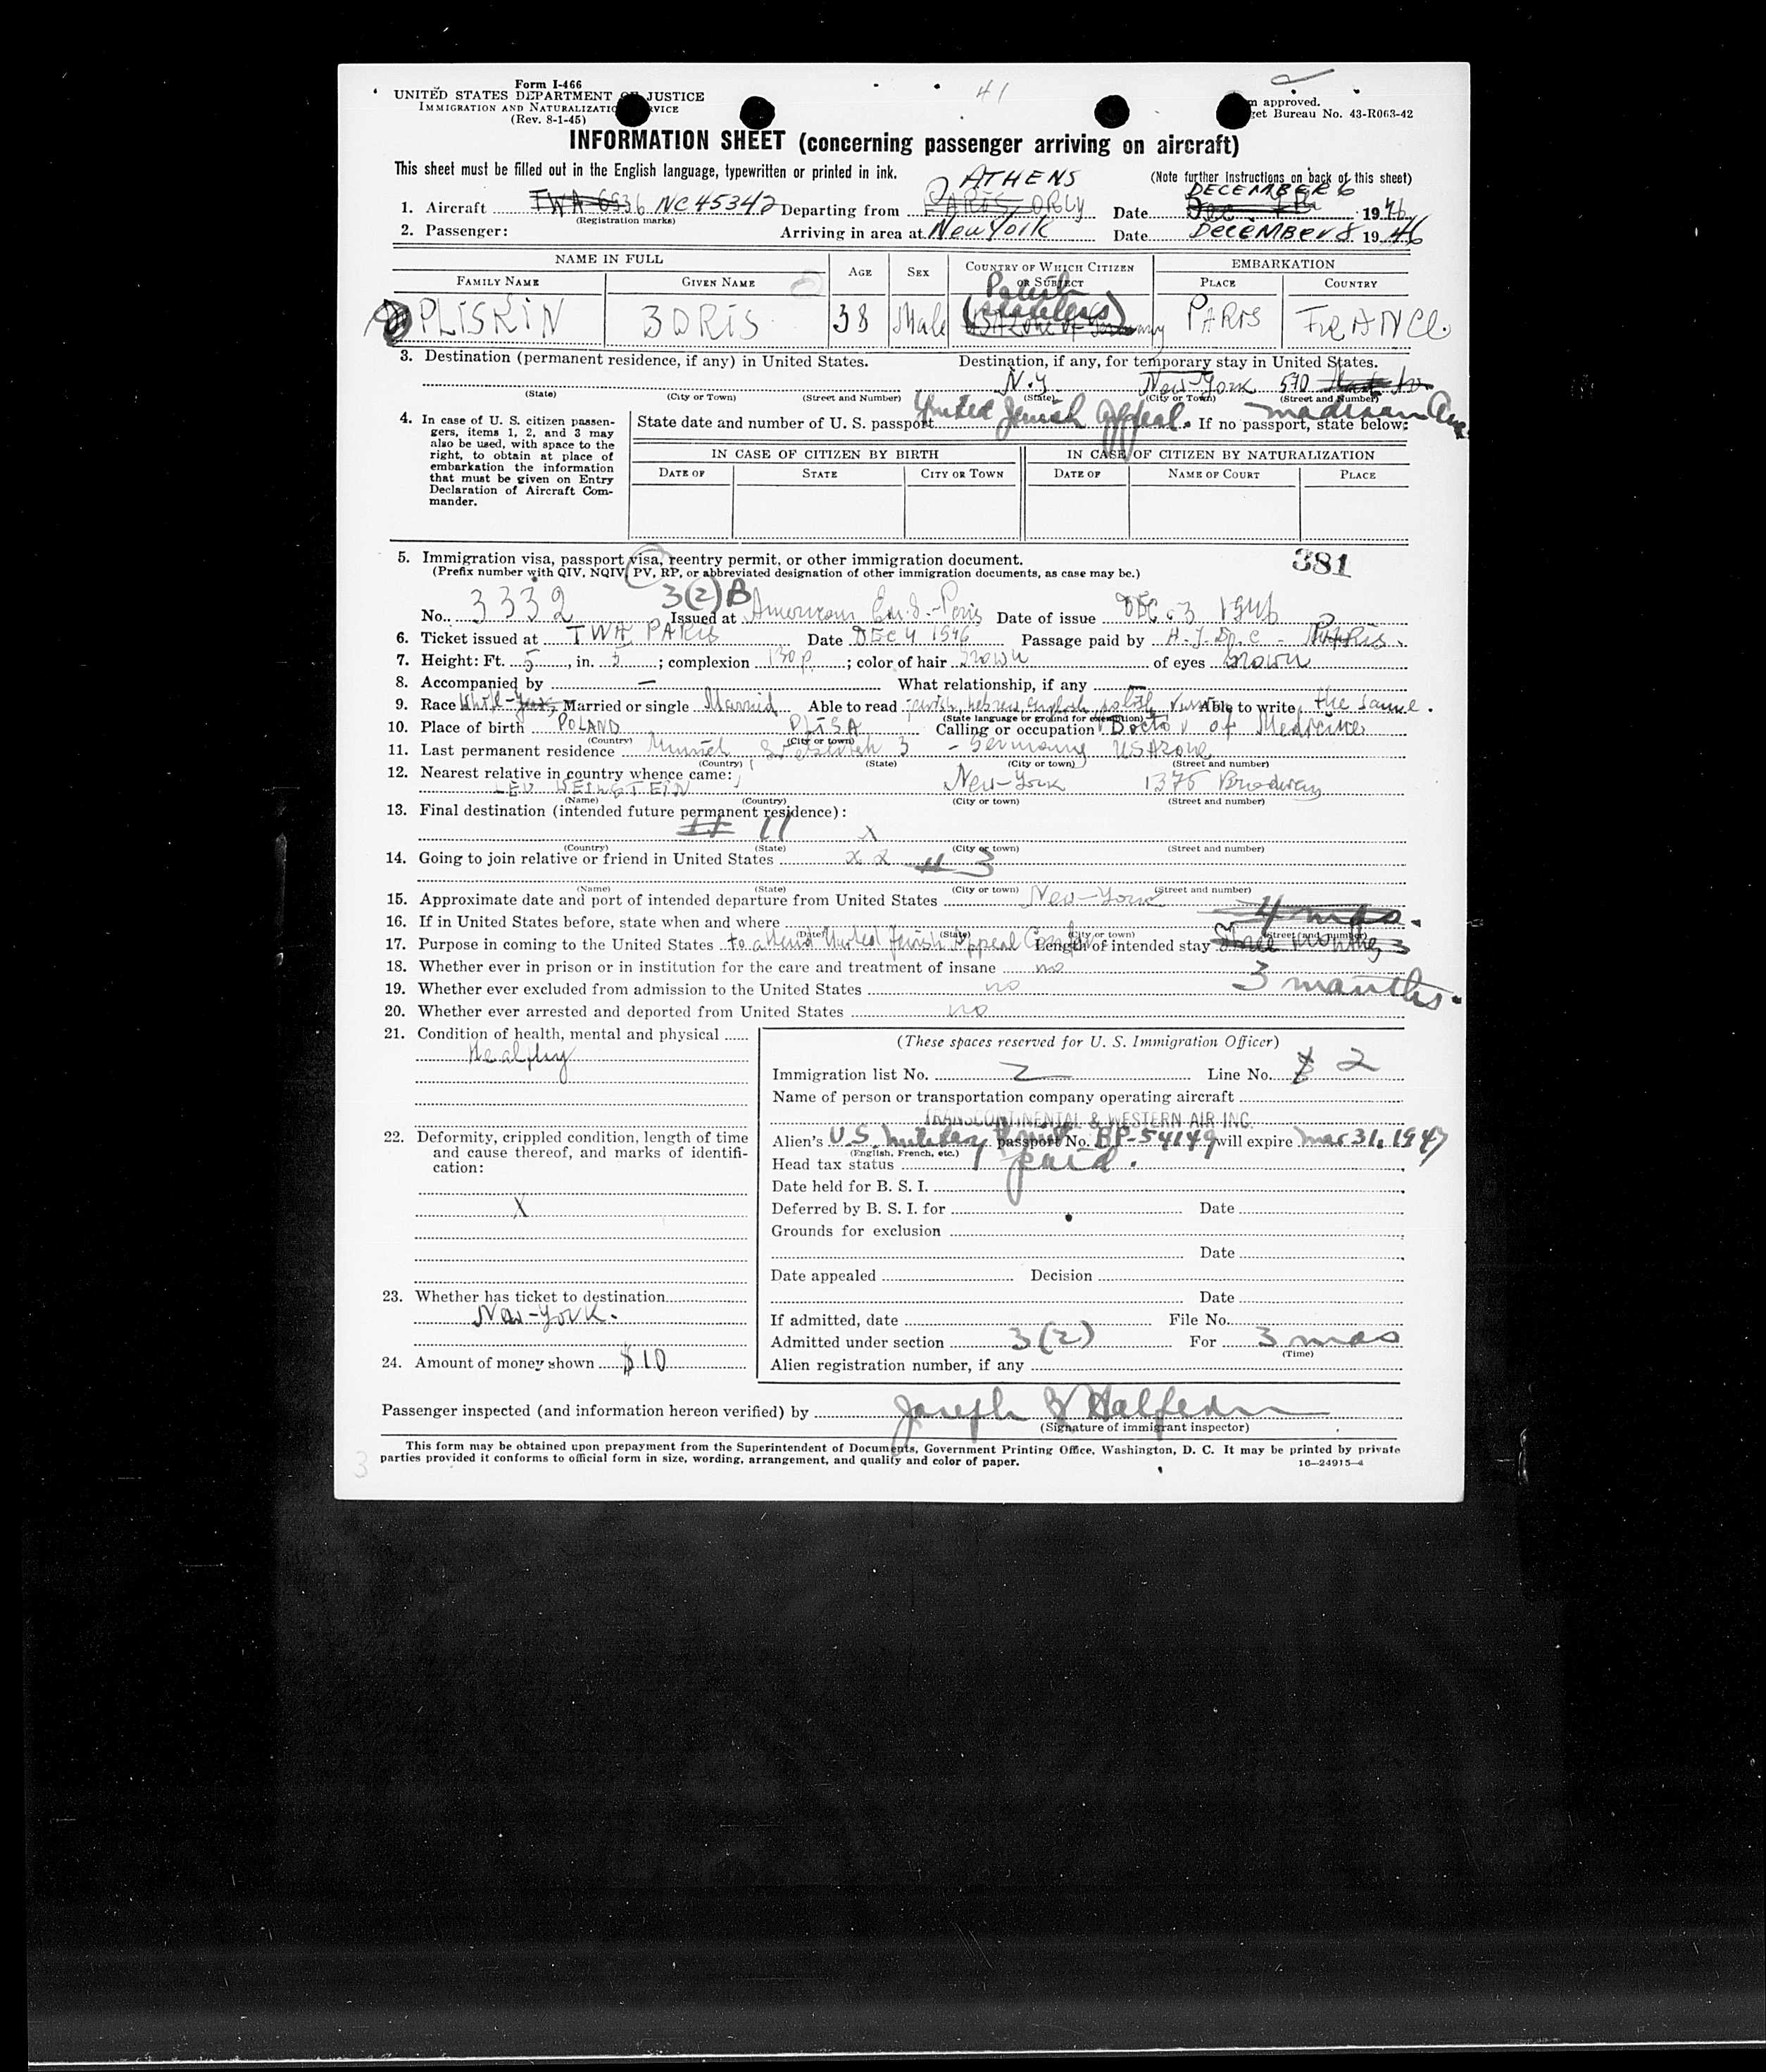 41
Form I-466
UNITED STATES DEPARTMENT OF JUSTICE
IMMIGRATION AND NATURALIZATION SERVICE
(Rev. 8-1-45)
approved.
Bureau No. 43-R063-42
INFORMATION SHEET (concerning passenger arriving on aircraft)
This sheet must be filled out in the English language, typewritten or printed in ink. (Note further instructions on back of this sheet)
ATHENS DECEMBER 6
1. Aircraft TWA 6936 NC 45342 Departing from PARIS, ORLY Date 1946
(Registration marks)
2. Passenger: Arriving in area at New York Date DECEMBER 8 1946
NAME IN FULL AGE SEX COUNTRY OF WHICH CITIZEN OR SUBJECT EMBARKATION
FAMILY NAME GIVEN NAME PLACE COUNTRY
Polish
PLISKIN BORIS 38 Male (stateless) PARIS FRANCE
3. Destination (permanent residence, if any) in United States. Destination, if any, for temporary stay in United States.
N.Y New-York 590
(State) (City or Town) (Street and Number) (State) (City or Town) (Street and Number)
United Jewish Appeal. Madison Ave
4. In case of U. S. citizen passengers, items 1, 2, and 3 may also be used, with space to the right, to obtain at place of embarkation the information that must be given on Entry Declaration of Aircraft Commander.
State date and number of U. S. passport If no passport, state below:
IN CASE OF CITIZEN BY BIRTH IN CASE OF CITIZEN BY NATURALIZATION
DATE OF STATE CITY OR TOWN DATE OF NAME OF COURT PLACE
5. Immigration visa, passport visa, reentry permit, or other immigration document. 381
(Prefix number with QIV, NQIV, PV, RP, or abbreviated designation of other immigration documents, as case may be.)
3(2)B
No. 3332 Issued at American Paris Date of issue DEC. 3 1946
6. Ticket issued at TWA PARIS Date DEC 4 1946 Passage paid by PARIS
7. Height: Ft. 5, in. 5; complexion 130 p; color of hair brown of eyes brown
8. Accompanied by — What relationship, if any —
9. Race White Married or single Married Able to read jewish, hebrew, english, polish Able to write the same.
(State language or ground for exemption)
10. Place of birth POLAND PLISA Calling or occupation Doctor of Medicine
(Country) (City or town)
11. Last permanent residence Munich 3 - Germany USA zone
(Country) (State) (City or town) (Street and number)
12. Nearest relative in country whence came:
LEV WEINSTEIN New-York 1375 Brodway
(Name) (Country) (City or town) (Street and number)
13. Final destination (intended future permanent residence):
11 x
(Country) (State) (City or town) (Street and number)
14. Going to join relative or friend in United States x 3
(Name) (State) (City or town) (Street and number)
15. Approximate date and port of intended departure from United States New-York
4 mos.
16. If in United States before, state when and where
(Date) (State) (City or town) (Street and number)
17. Purpose in coming to the United States to attend United Jewish Appeal Length of intended stay three months
18. Whether ever in prison or in institution for the care and treatment of insane no
3 months.
19. Whether ever excluded from admission to the United States no
20. Whether ever arrested and deported from United States no
21. Condition of health, mental and physical
Healthy
22. Deformity, crippled condition, length of time and cause thereof, and marks of identification:
X
23. Whether has ticket to destination
New-York.
24. Amount of money shown $10
(These spaces reserved for U. S. Immigration Officer)
Immigration list No. 2 Line No. 2
Name of person or transportation company operating aircraft
TRANSCONTINENTAL & WESTERN AIR INC.
Alien's U.S. Military Permit passport No. BP-54149 will expire Mar 31, 1947
(English, French, etc.)
Head tax status paid.
Date held for B. S. I.
Deferred by B. S. I. for Date
Grounds for exclusion
Date
Date appealed Decision
Date
If admitted, date File No.
Admitted under section 3(2) For 3 mos
(Time)
Alien registration number, if any
Passenger inspected (and information hereon verified) by Joseph
(Signature of immigrant inspector)
This form may be obtained upon prepayment from the Superintendent of Documents, Government Printing Office, Washington, D. C. It may be printed by private
parties provided it conforms to official form in size, wording, arrangement, and quality and color of paper. 16—24915-4
3